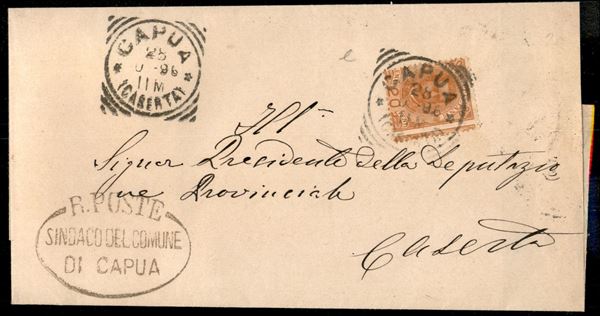 CAPUA
28
-96
11M
(CASERTA)
CAPUA
28
96
Ill.
Signor Presidente della Deputazio
ne Provinciale
Caserta
R. POSTE
SINDACO DEL COMUNE
DI CAPUA